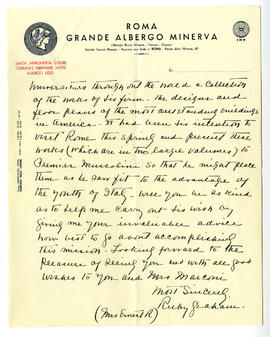 ROMA
GRANDE ALBERGO MINERVA
SANTA MARGHERITA LIGURE
ALBERGO LIDO
Universities throughout the world a Collection
of the works of his firm - the designs and
floor plans of the most outstanding buildings
in America. It had been his intention to
visit Rome this Spring and present these
works (which are in two large volumes) to
Premier Mussolini so that he might place
them as he saw fit to the advantage of
the youth of Italy. Will you be so kind
as to help me carry out his wish by
giving me your invaluable advice
how best to go about accomplishing
this mission. Looking forward to the
pleasure of seeing you and with all good
wishes to you and Mrs Marconi
Most Sincerely,
Ruby Graham.
(Mrs Ernest R)